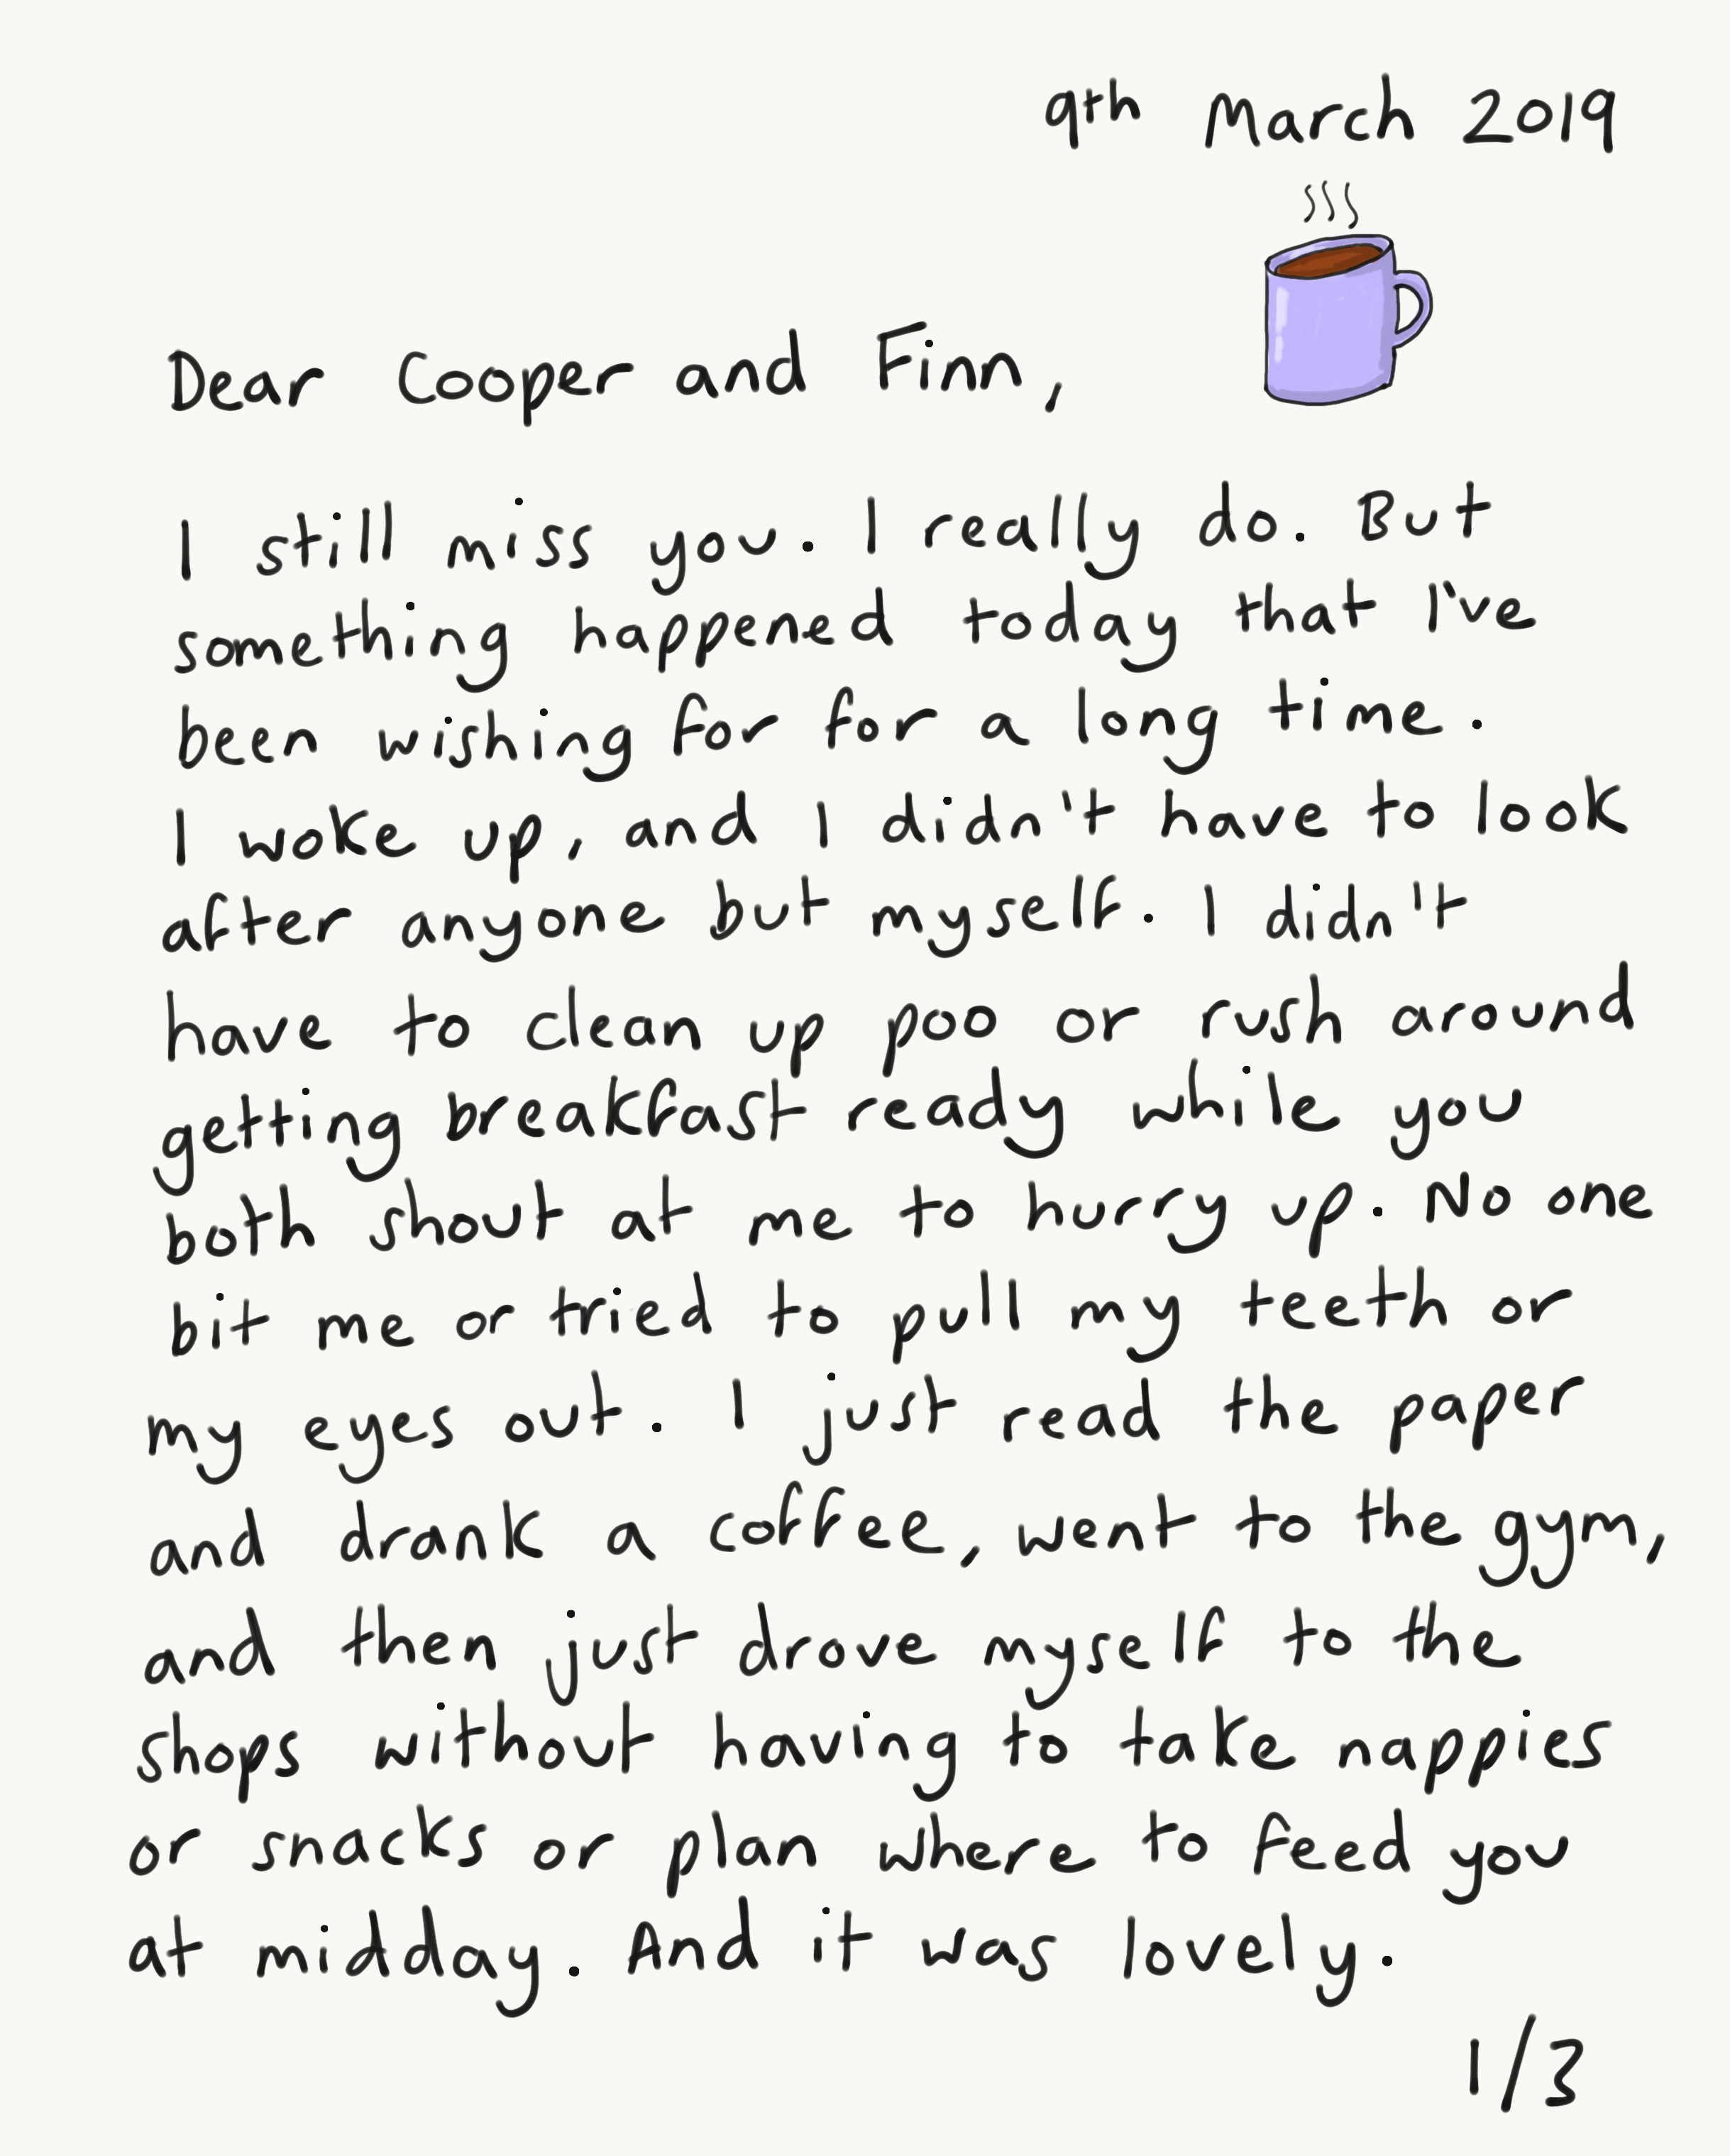 9th March 2019
Dear Cooper and Finn,
I still miss you. I really do. But
something happened today that I've
been wishing for for a long time.
I woke up, and I didn't have to look
after anyone but myself. I didn't
have to clean up poo or rush around
getting breakfast ready while you
both shout at me to hurry up. No one
bit me or tried to pull my teeth or
my eyes out. I just read the paper
and drank a coffee, went to the gym,
and then just drove myself to the
shops without having to take nappies
or snacks or plan where to feed you
at midday. And it was lovely.
1/3